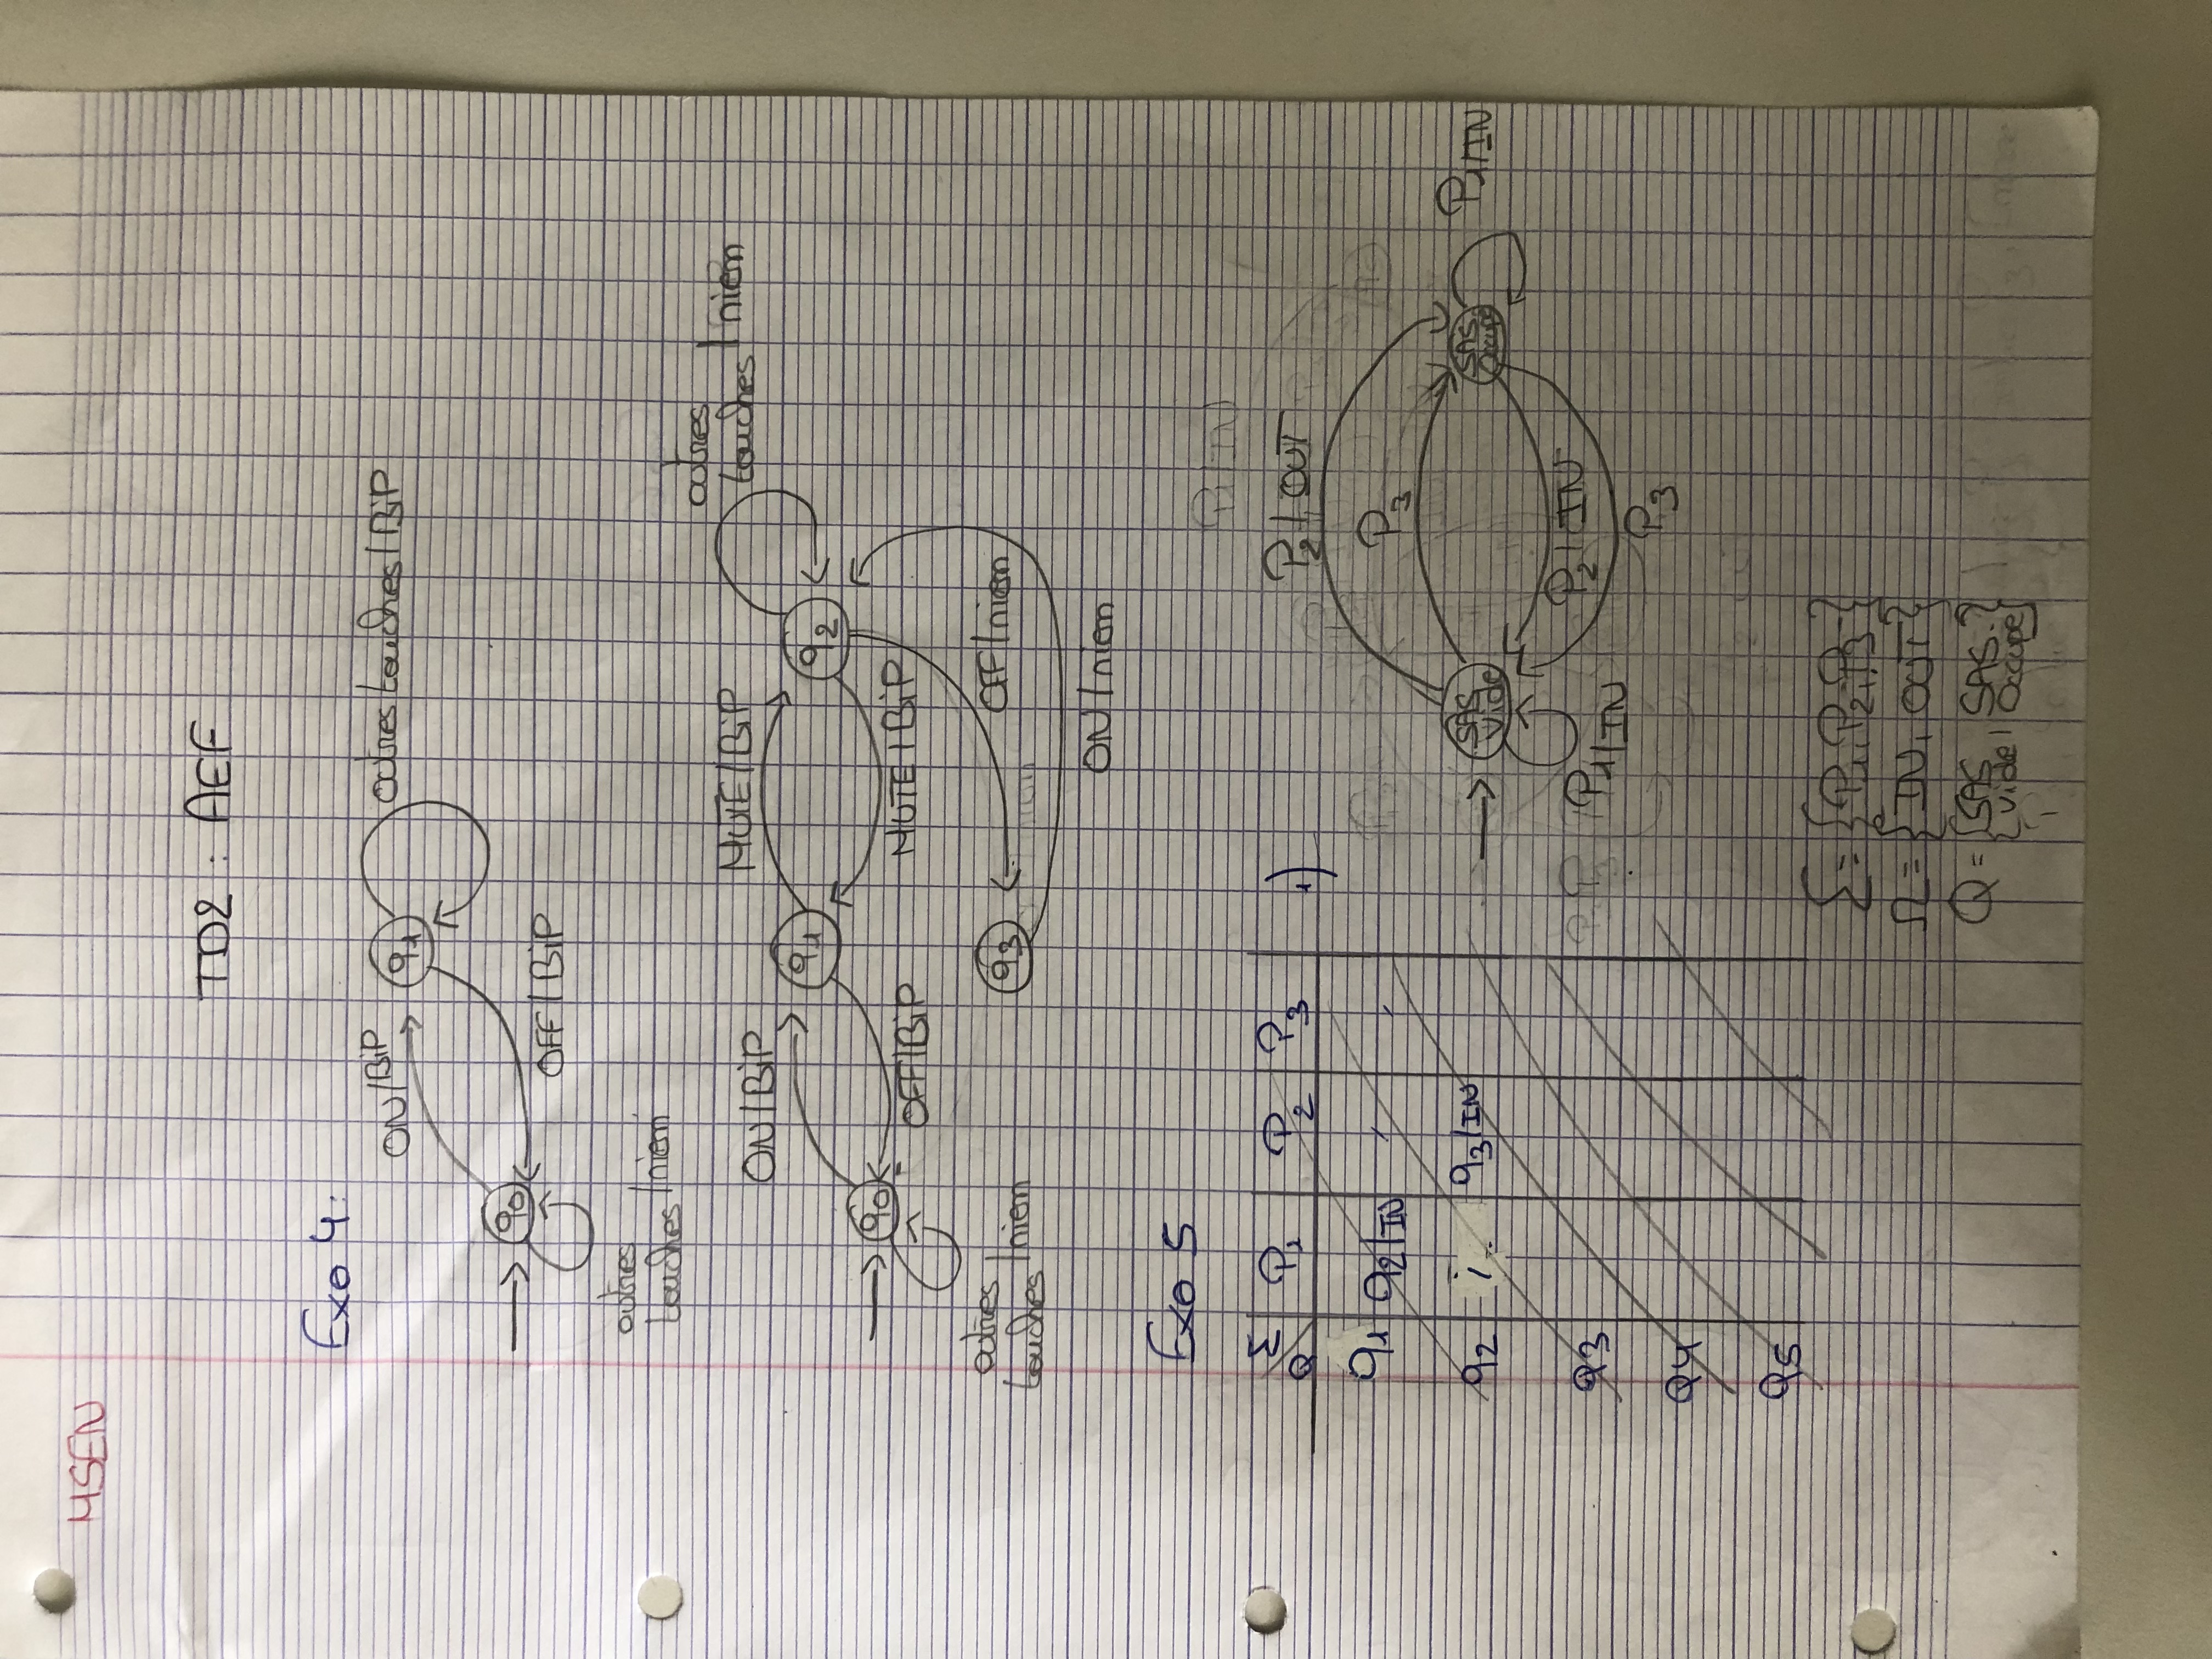 MSEN
TD2 : AEF
Exo 4:
ON/BiP
q1
autres touches/BiP
q0
OFF/BiP
autres
touches/rien
autres
touches/rien
MUTE/BiP
ON/BiP
q1
q2
q0
MUTE/BiP
OFF/BiP
autres
touches/rien
q3
OFF/rien
ON/rien
Exo 5
Σ
Q
P1
P2
P3
1)
P2/OUT
q1
q2/IN
P3
q2
q3/IN
SAS
Vide
SAS
Occupé
P1/IN
P2/IN
P1/IN
q3
P3
q4
q5
Σ = {P1, P2, P3}
Ω = {IN, OUT}
Q = {SAS vide, SAS Occupé}